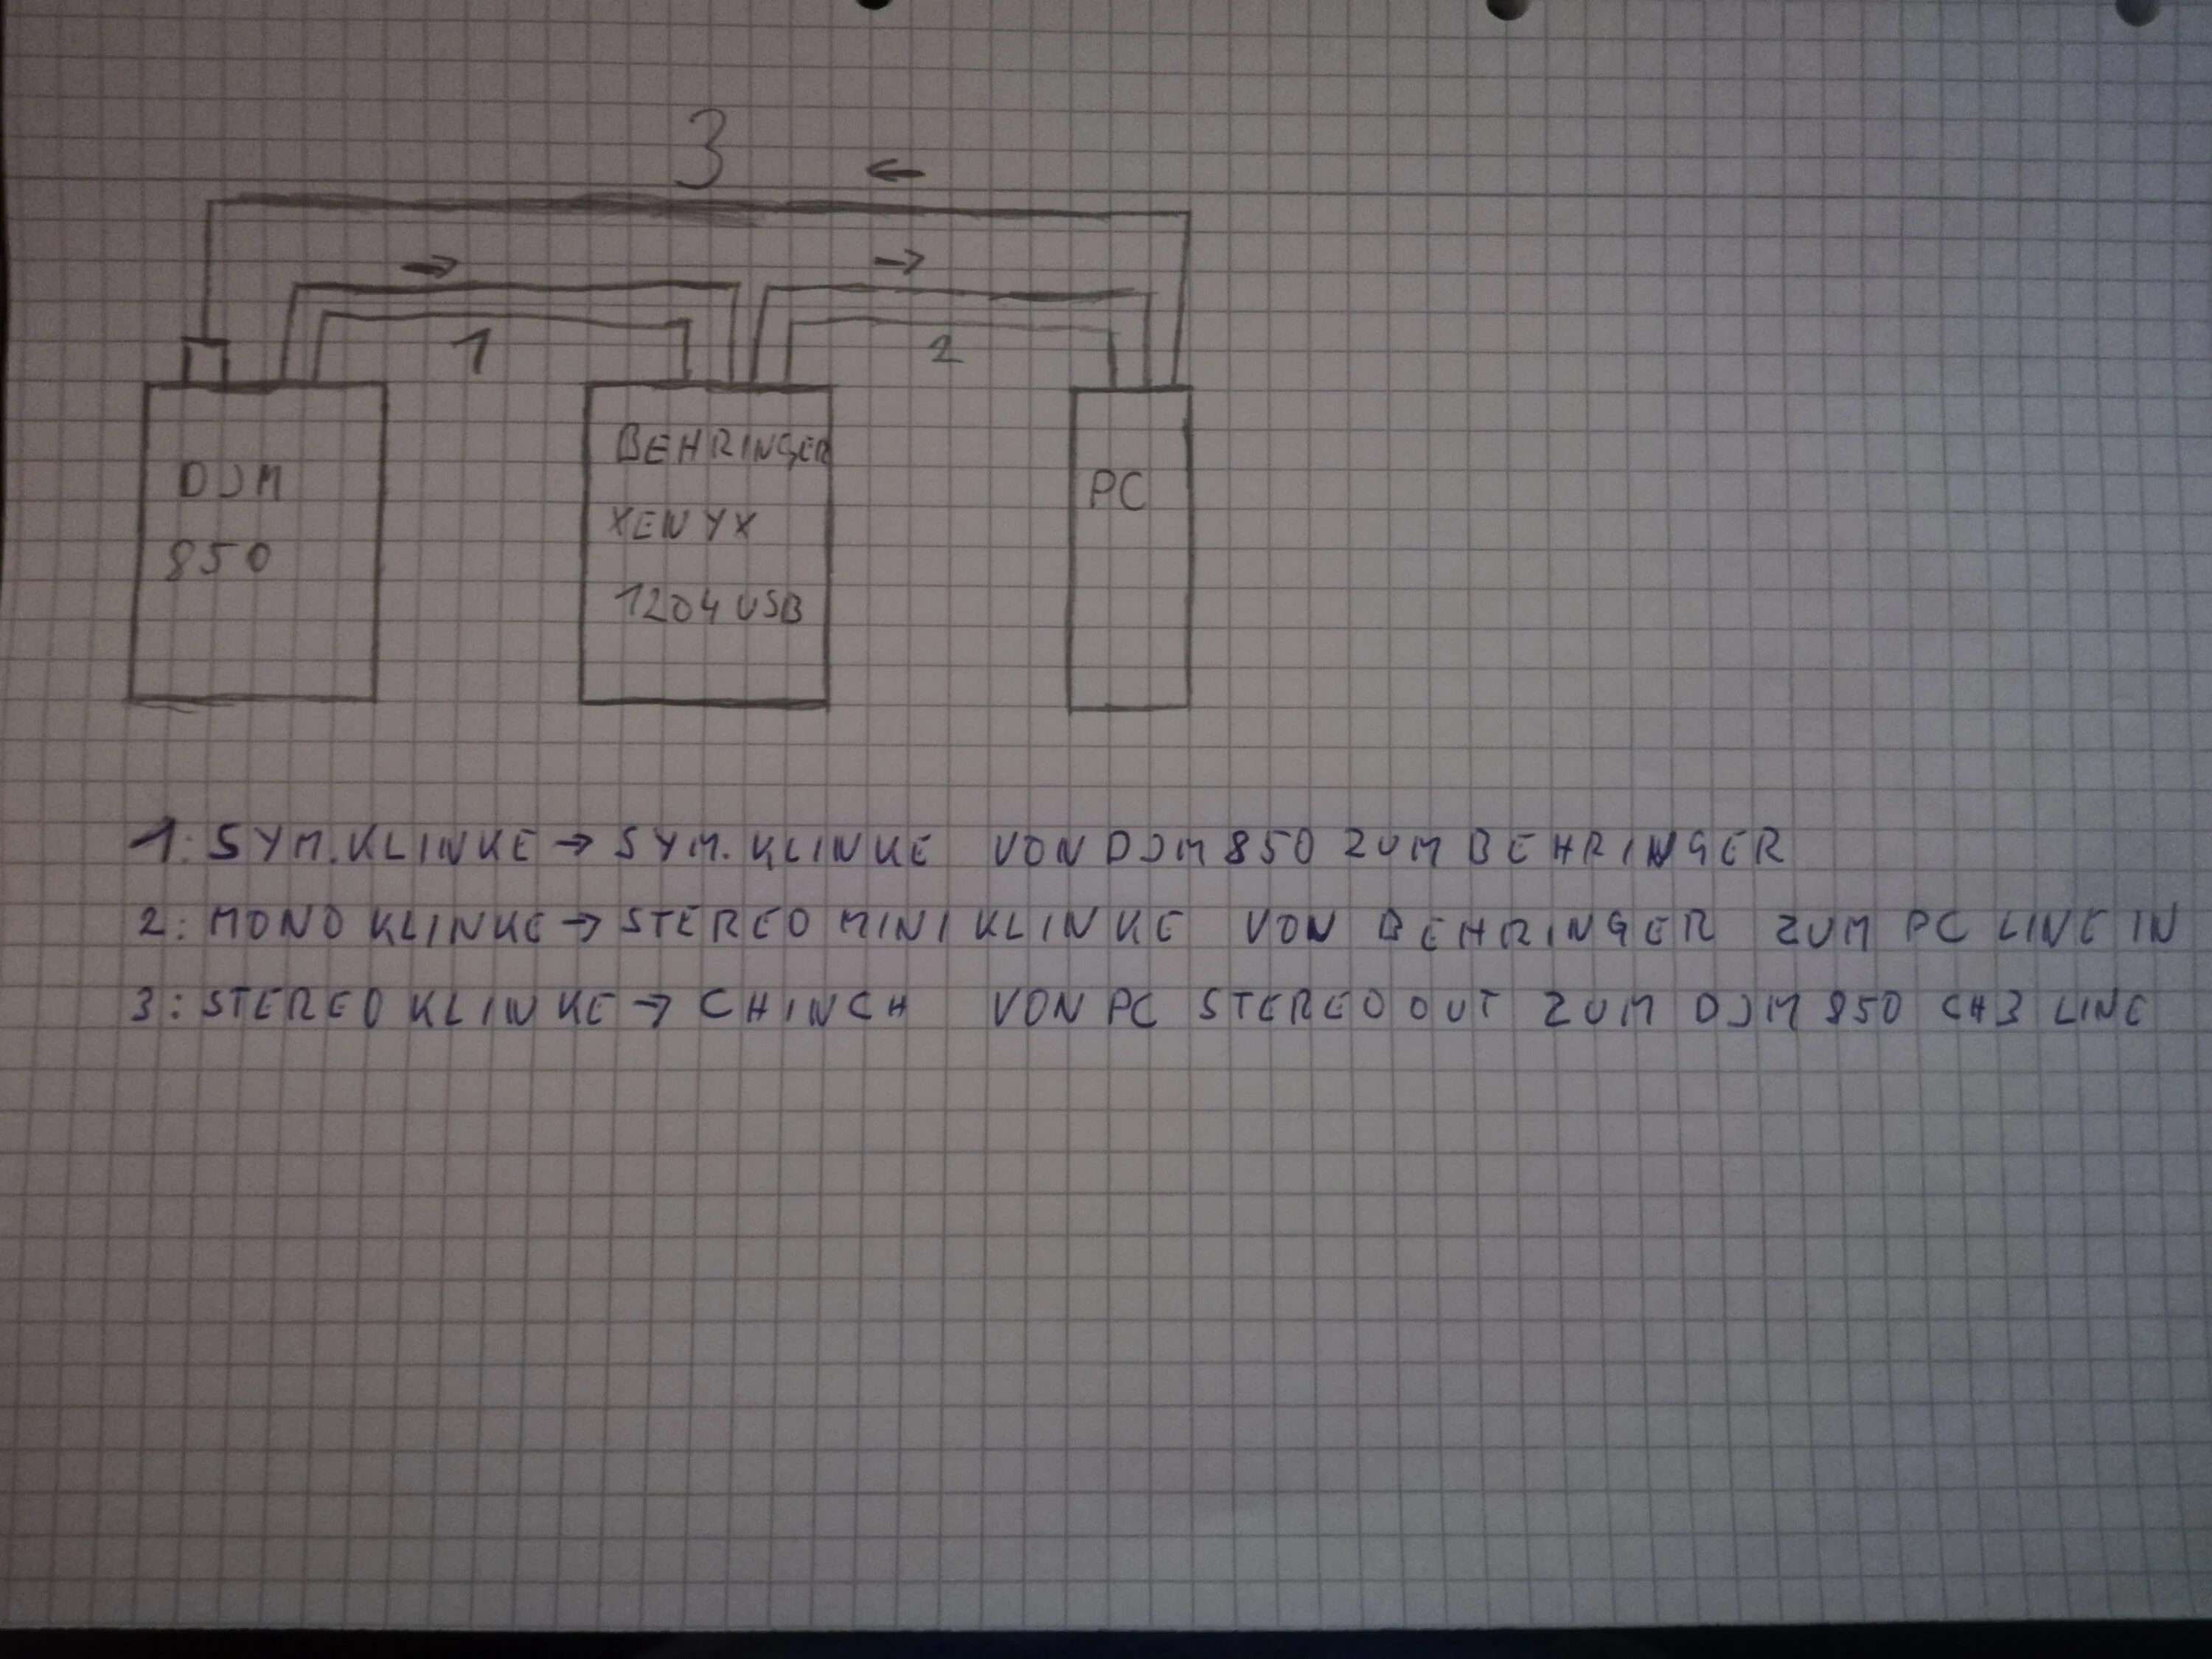 3 ←
→ →
1 2
DJM
850
BEHRINGER
XENYX
1204 USB
PC
1: SYM. KLINKE → SYM. KLINKE VON DJM 850 ZUM BEHRINGER
2: MONO KLINKE → STEREO MINI KLINKE VON BEHRINGER ZUM PC LINE IN
3: STEREO KLINKE → CHINCH VON PC STEREO OUT ZUM DJM 850 CH3 LINE